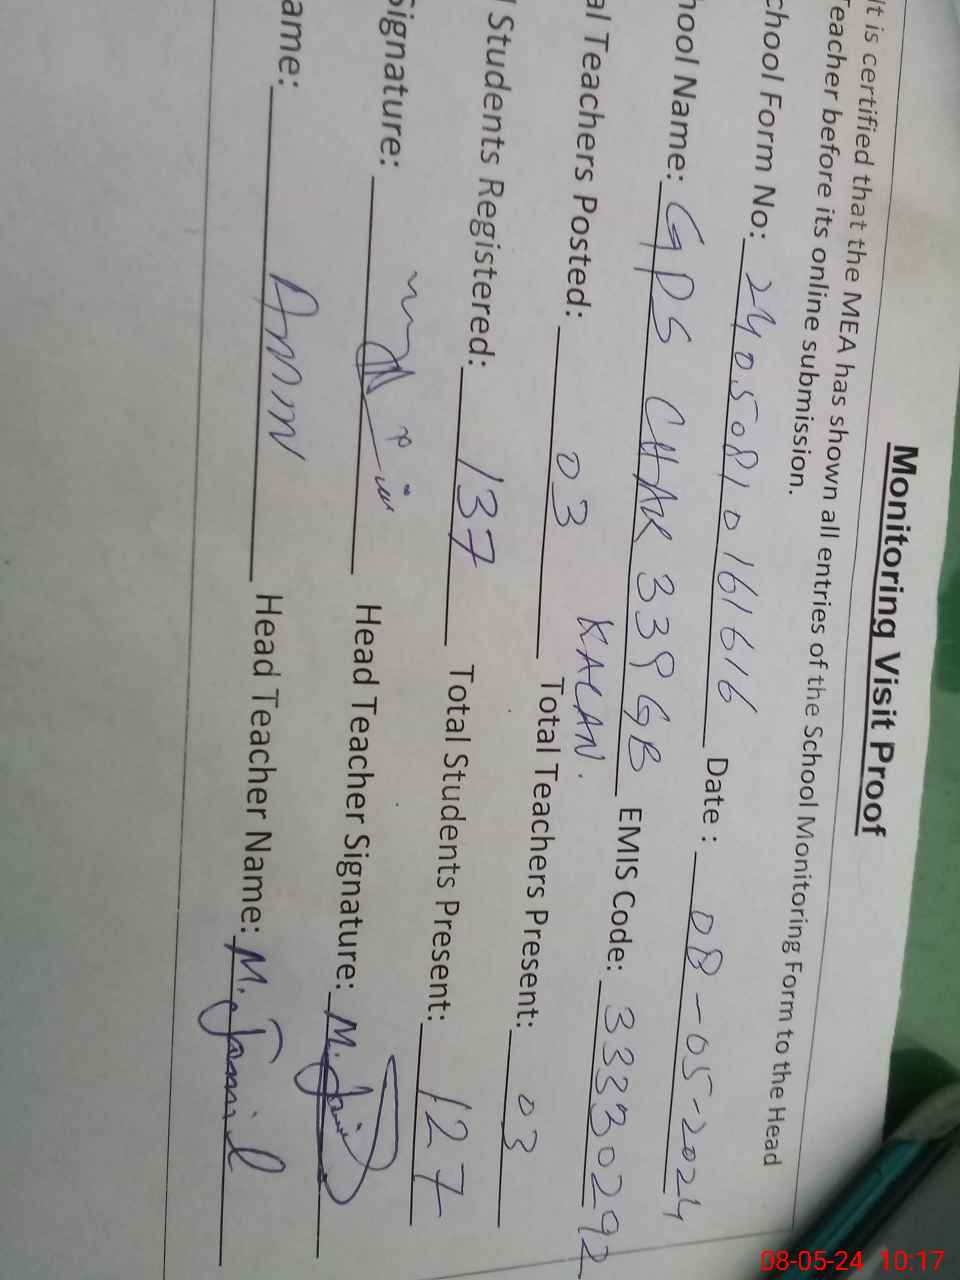 Monitoring Visit Proof
It is certified that the MEA has shown all entries of the School Monitoring Form to the Head
Teacher before its online submission.
chool Form No: 2405081016 1616 Date : 08-05-2024
hool Name: GPS CHAK 339 GB EMIS Code: 33330292
KALAN.
al Teachers Posted: 03 Total Teachers Present: 03
l Students Registered: 137 Total Students Present: 127
Signature: Head Teacher Signature: M. Jamil
ame: Head Teacher Name: M. Jamil
08-05-24 10:17